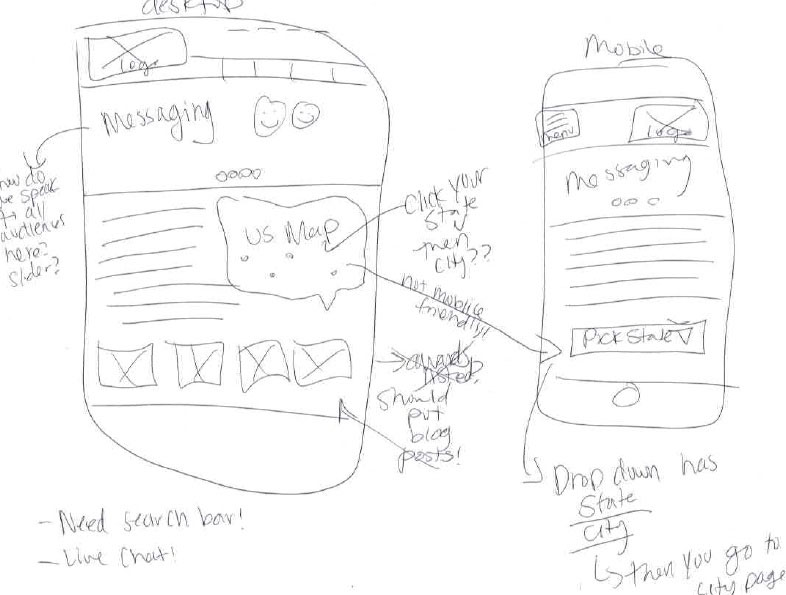 desktop
Logo
Messaging
how do
we speak
to all
audiences
here?
Slider?
US Map
Click your
State
then
City??
not mobile
friendly!!
should
put
blog
posts!
- Need search bar!
- Live Chat!
Mobile
menu
Logo
Messaging
Pick State
Drop down has
State
City
then you go to
city page